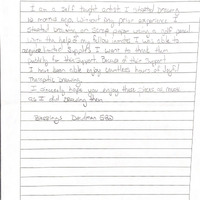 I am a self taught artist I started drawing
10 months ago. Without any prior experience I
started drawing on scrap paper using a golf pencil
With the help of my fellow inmates I was able to
acquire Limited Supplies I want to thank them
for their support. Because of their support
I have been able enjoy countless hours of Joyful
Theraputic Drawing.
I sincerely hope you enjoy these pieces as much
as I did drawing them
Blessings